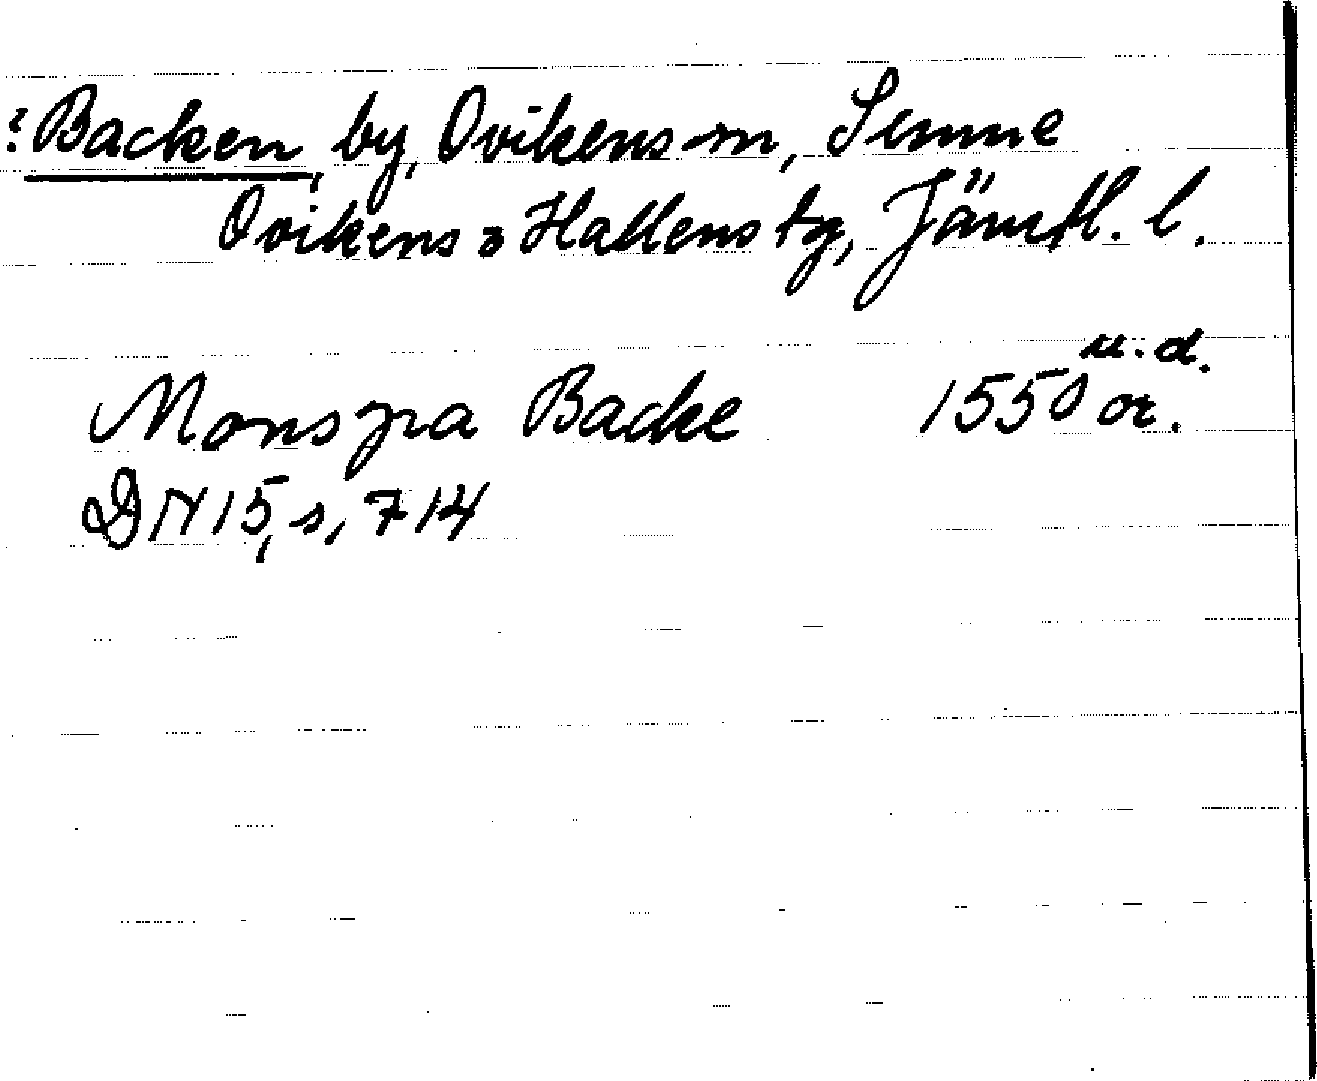 ? Backen, by, Ovikens sn, Sunne
Ovikens o Hallens tg, Jämtl. l.
u. d.
Mons paa Backe 1550 or.
DN 15, s. 714